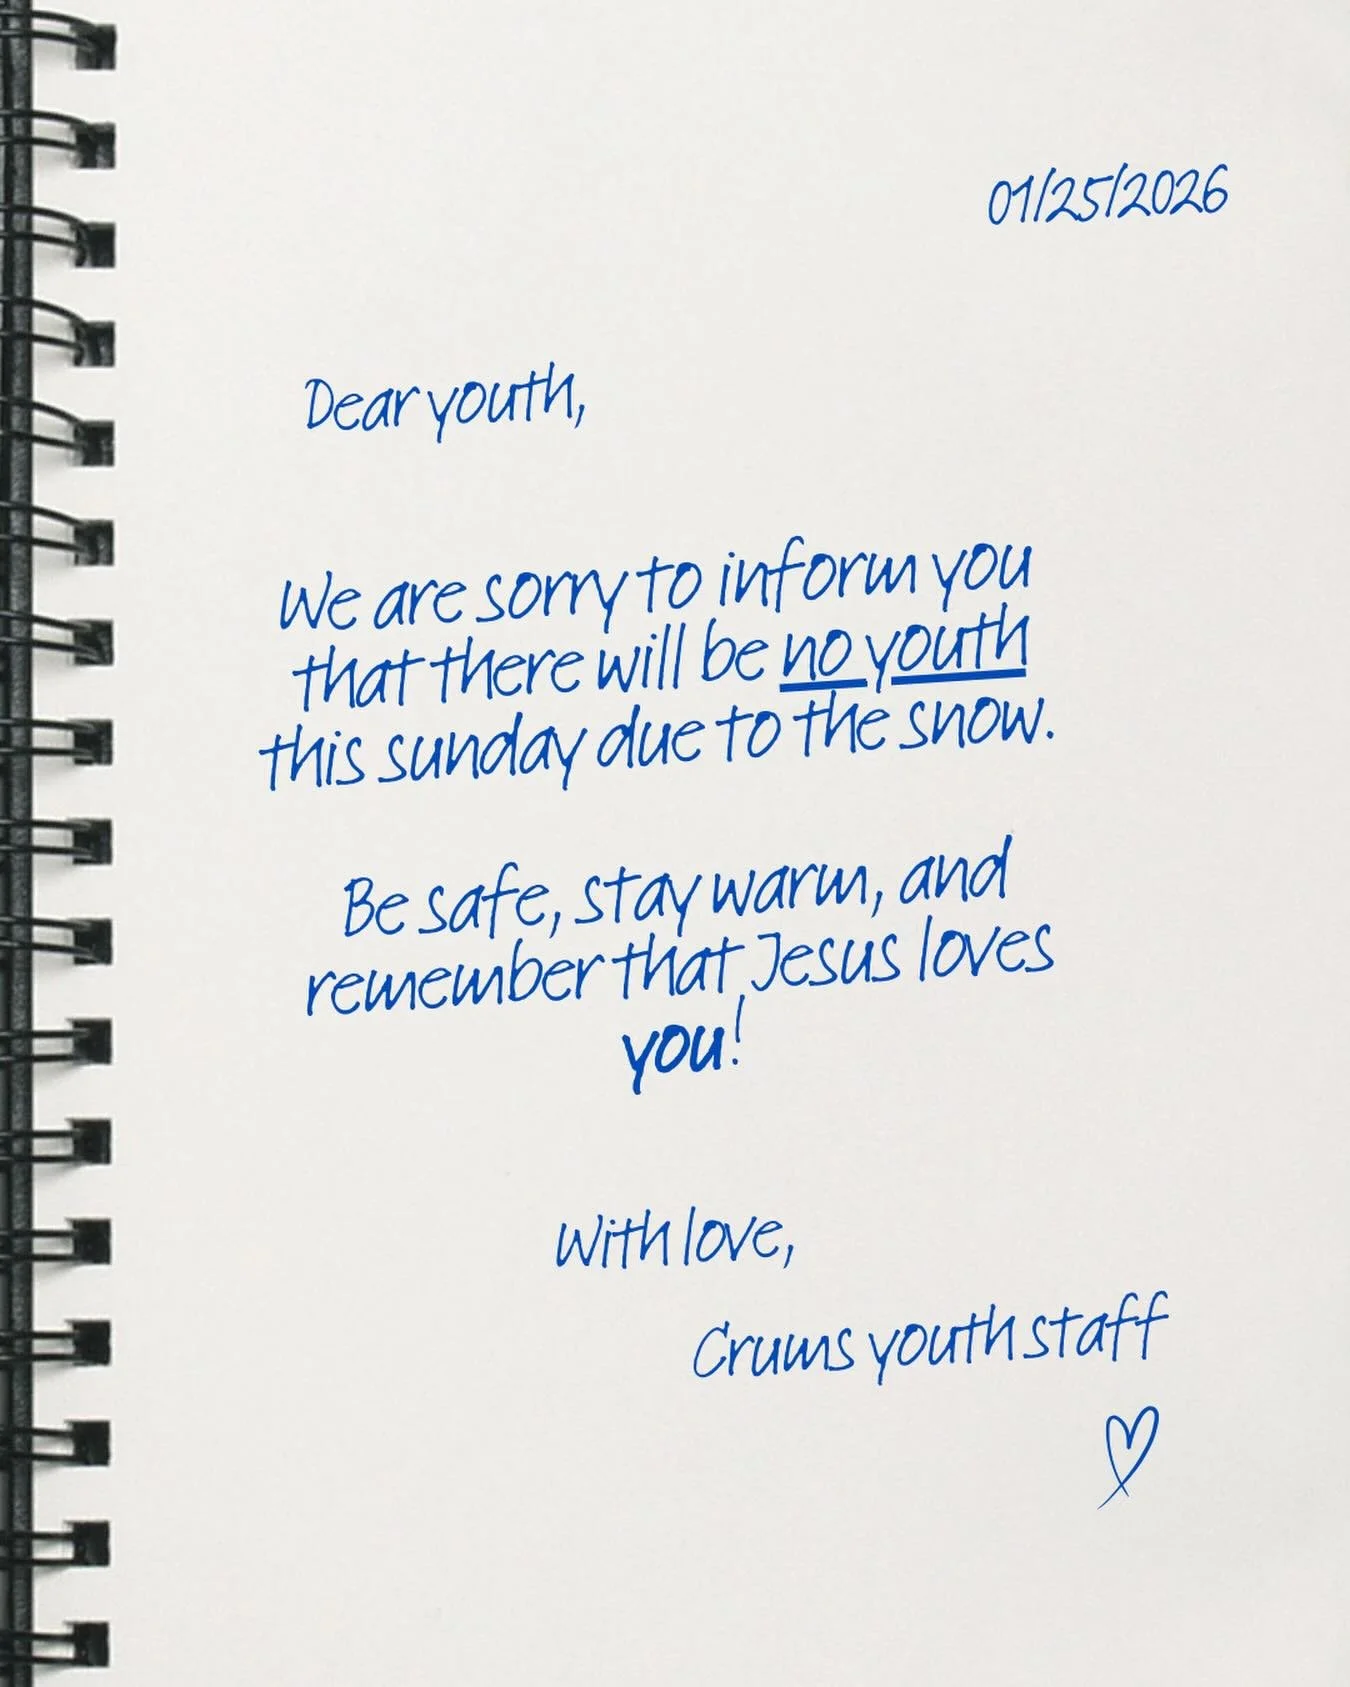 01/25/2026
Dear youth,
We are sorry to inform you
that there will be no youth
this sunday due to the snow.
Be safe, stay warm, and
remember that Jesus loves
you!
With love,
Crums youth staff